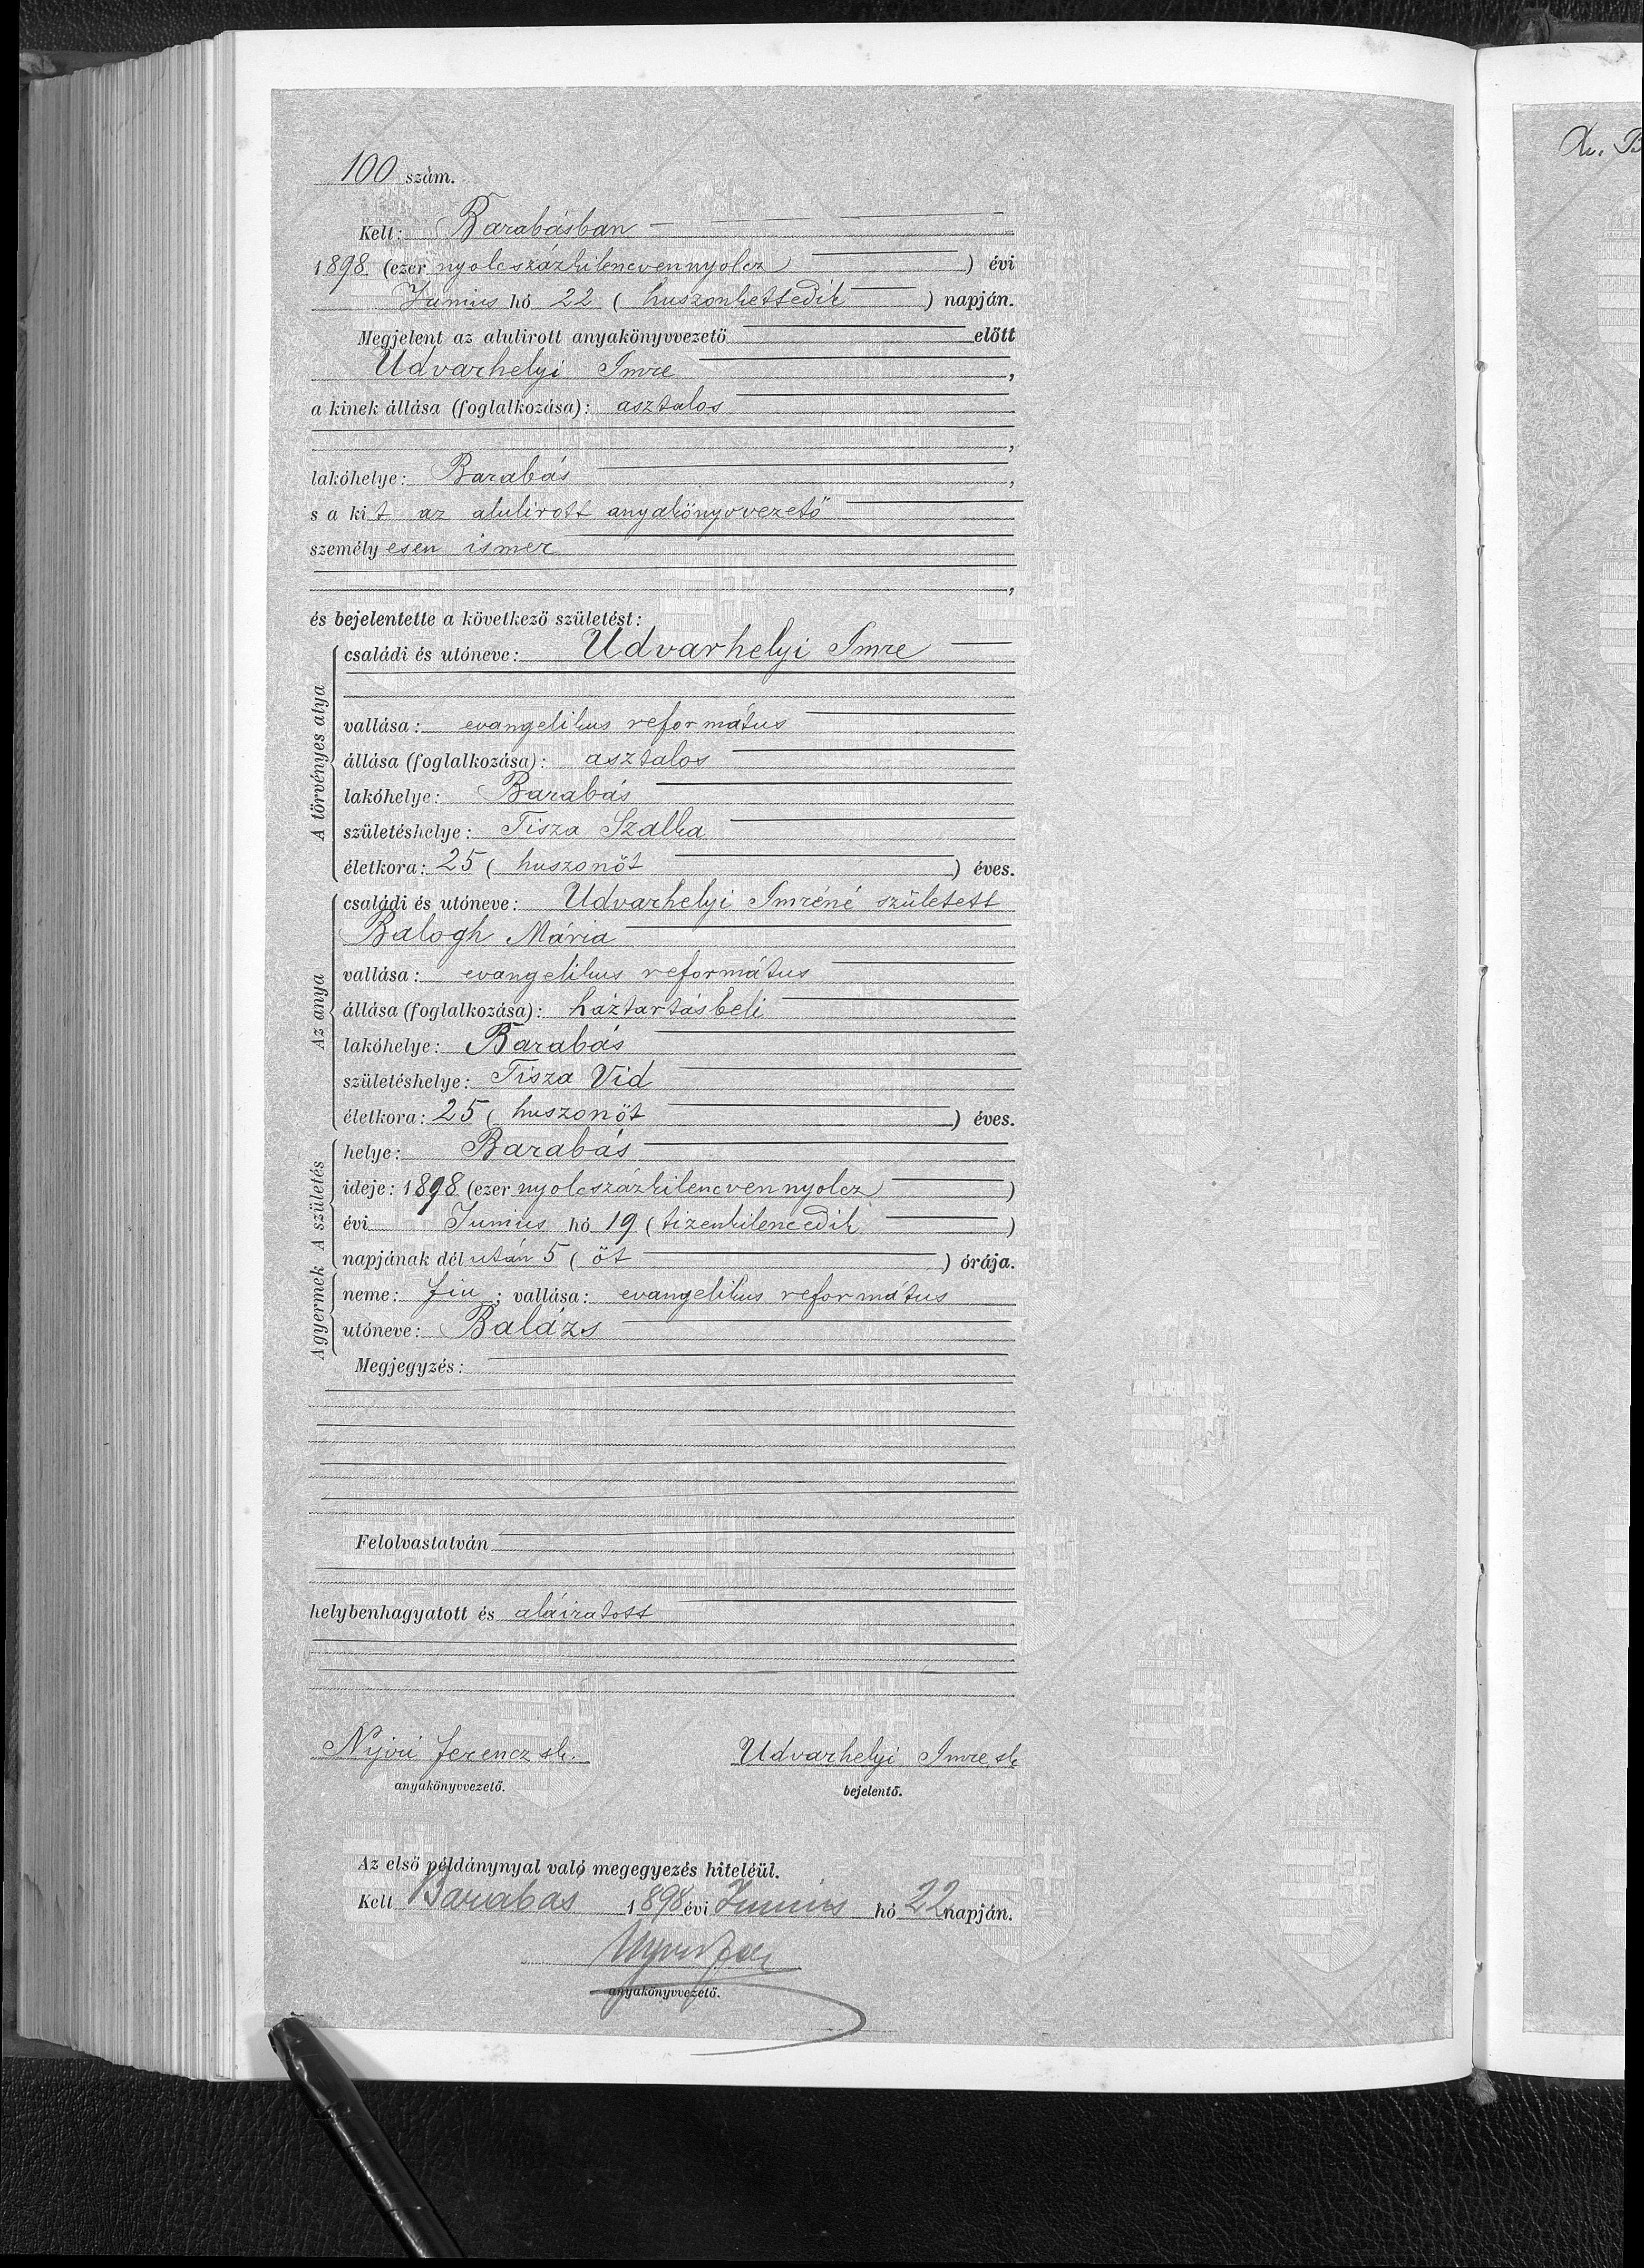 100 szám.
Kelt: Barabásban
1898 (ezer nyolcszázkilencvennyolcz) évi
Junius hó 22 (huszonkettedik) napján.
Megjelent az alulirott anyakönyvvezető előtt
Udvarhelyi Imre,
a kinek állása (foglalkozása): asztalos
,
lakóhelye: Barabás,
s a kit az alulirott anyakönyvvezető
személyesen ismer
,
és bejelentette a következő születést:
A törvényes atya
családi és utóneve: Udvarhelyi Imre
vallása: evangelikus református
állása (foglalkozása): asztalos
lakóhelye: Barabás
születéshelye: Tisza Szalka
életkora: 25 (huszonöt) éves.
Az anya
családi és utóneve: Udvarhelyi Imréné született
Balogh Mária
vallása: evangelikus református
állása (foglalkozása): háztartásbeli
lakóhelye: Barabás
születéshelye: Tisza Vid
életkora: 25 (huszonöt) éves.
A születés
helye: Barabás
ideje: 1898 (ezer nyolcszázkilencvennyolcz)
évi Junius hó 19 (tizenkilencedik)
napjának délután 5 (öt) órája.
A gyermek
neme: fiu; vallása: evangelikus református
utóneve: Balázs
Megjegyzés:
Felolvastatván
helybenhagyatott és aláiratott
Nyiri Ferencz sk. Udvarhelyi Imre sk
anyakönyvvezető. bejelentő.
Az első példánynyal való megegyezés hiteléül.
Kelt Barabás 1898 évi Junius hó 22 napján.
anyakönyvvezető.